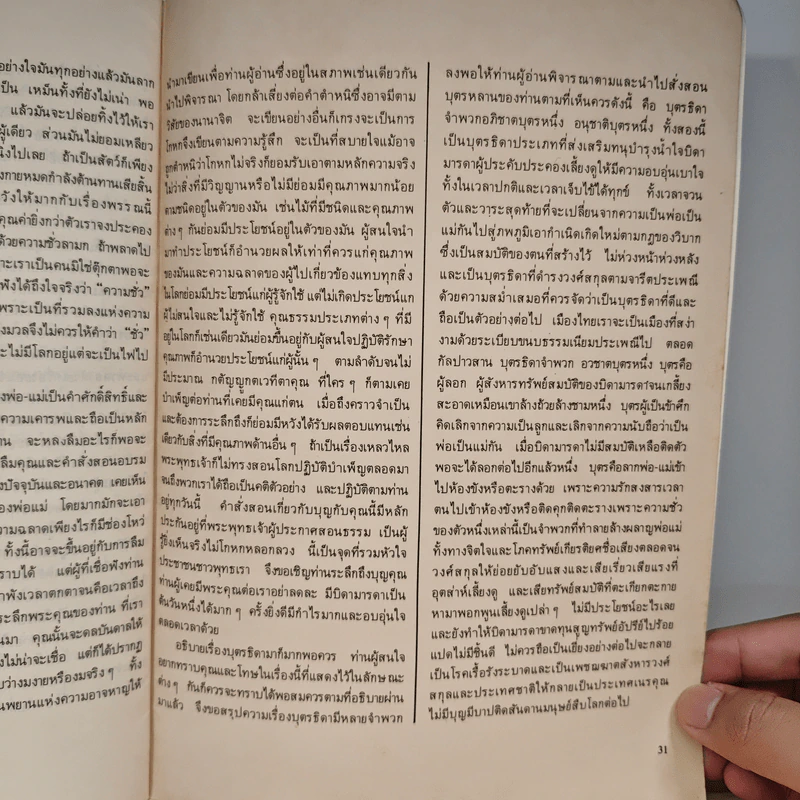 อย่างใจมันทุกอย่างแล้วมันลาก
เป็น เหม็นทั้งที่ยังไม่เน่า พอ
แล้วมันจะปล่อยทิ้งไว้ให้เรา
ผู้เดียว ส่วนมันไม่ยอมเหลียว
ถ้าเป็นสัตว์ก็เพียง
งกายหมดกำลังต้านทานเสียสิ้น
วังให้มากกับเรื่องพรรณนี้
คุณค่ายิ่งกว่าตัวเราจงประคอง
ด้วยความชั่วลามก ถ้าพลาดไป
าะเราเป็นคนมิใช่ตุ๊กตาพอจะ
ฟังได้ถึงใจจริงว่า "ความชั่ว"
พราะเป็นที่รวมลงแห่งความ
งมวลจึงไม่ควรให้คำว่า "ชั่ว"
ะไม่มีโลกอยู่แต่จะเป็นไฟไป
งพ่อ-แม่เป็นคำศักดิ์สิทธิ์และ
ความเคารพและถือเป็นหลัก
าน จะหลงลืมอะไรก็พอจะ
ลืมคุณและคำสั่งสอนอบรม
งปัจจุบันและอนาคต เคยเห็น
องพ่อแม่ โดยมากมักจะเอา
วามฉลาดเพียงไรก็มีช่องโหว่
ทั้งนี้อาจจะขึ้นอยู่กับการลืม
ราบได้ แต่ผู้ที่เชื่อฟังท่าน
าพังเวลาตกตาจนคือเวลาถึง
ระลึกพระคุณของท่าน ที่เรา
นมา คุณนั้นจะดลบันดาลให้
งไม่น่าจะเชื่อ แต่ก็ได้ปรากฏ
บว่างมงายหรืองมจริงๆ ทั้ง
นพยานแห่งความอาจหาญให้
นำมาเขียนเพื่อท่านผู้อ่านซึ่งอยู่ในสภาพเช่นเดียวกัน
นำไปพิจารณา โดยกล้าเสี่ยงต่อคำตำหนิซึ่งอาจมีตาม
วิสัยของนานาจิต จะเขียนอย่างอื่นก็เกรงจะเป็นการ
โกหกจึงเขียนตามความรู้สึก จะเป็นที่สบายใจแม้อาจ
ถูกตำหนิว่าโกหกไม่จริงก็ยอมรับเอาตามหลักความจริง
ไม่ว่าสิ่งที่มีวิญญานหรือไม่มีย่อมมีคุณภาพมากน้อย
ตามชนิดอยู่ในตัวของมัน เช่นไม้ที่มีชนิดและคุณภาพ
ต่างๆ กันย่อมมีประโยชน์อยู่ในตัวของมัน ผู้สนใจนำ
มาทำประโยชน์ก็อำนวยผลให้เท่าที่ควรแก่คุณภาพ
ของมันและความฉลาดของผู้ไปเกี่ยวข้องแทบทุกสิ่ง
ในโลกย่อมมีประโยชน์แก่ผู้รู้จักใช้ แต่ไม่เกิดประโยชน์แก่
ผู้ไม่สนใจและไม่รู้จักใช้ คุณธรรมประเภทต่างๆ ที่มี
อยู่ในโลกก็เช่นเดียวมันย่อมขึ้นอยู่กับผู้สนใจปฏิบัติรักษา
คุณภาพก็อำนวยประโยชน์แก่ผู้นั้นๆ ตามลำดับจนไม่
มีประมาณ กตัญญูกตเวทีตาคุณ ที่ใครๆ ก็ตามเคย
บำเพ็ญต่อท่านที่เคยมีคุณแก่ตน เมื่อถึงคราวจำเป็น
และต้องการระลึกถึงก็ย่อมมีหวังได้รับผลตอบแทนเช่น
เดียวกับสิ่งที่มีคุณภาพด้านอื่นๆ ถ้าเป็นเรื่องเหลวไหล
พระพุทธเจ้าก็ไม่ทรงสอนโลกปฏิบัติบำเพ็ญตลอดมา
จนถึงพวกเราได้ถือเป็นคติตัวอย่าง และปฏิบัติตามท่าน
อยู่ทุกวันนี้ คำสั่งสอนเกี่ยวกับบุญกับคุณนี้มีหลัก
ประกันอยู่ที่พระพุทธเจ้าผู้ประกาศสอนธรรม เป็นผู้
รู้ยิ่งเห็นจริงไม่โกหกหลอกลวง นี้เป็นจุดที่รวมหัวใจ
ประชาชนชาวพุทธเรา จึงขอเชิญท่านระลึกถึงบุญคุณ
ท่านผู้เคยมีพระคุณต่อเราอย่าลดละ มีบิดามารดาเป็น
ต้นวันหนึ่งได้มากๆ ครั้งยิ่งดีมีกำไรมากและอบอุ่นใจ
ตลอดเวลาด้วย
อธิบายเรื่องบุตรธิดามาก็มากพอควร ท่านผู้สนใจ
อยากทราบคุณและโทษในเรื่องนี้ที่แสดงไว้ในลักษณะ
ต่างๆ กันก็ควรจะทราบได้พอสมควรตามที่อธิบายผ่าน
มาแล้ว จึงขอสรุปความเรื่องบุตรธิดามีหลายจำพวก
ลงพอให้ท่านผู้อ่านพิจารณาตามและนำไปสั่งสอน
บุตรหลานของท่านตามที่เห็นควรดังนี้ คือ บุตรธิดา
จำพวกอภิชาตบุตรหนึ่ง อนุชาติบุตรหนึ่ง ทั้งสองนี้
เป็นบุตรธิดาประเภทที่ส่งเสริมทนุบำรุงน้ำใจบิดา
มารดาผู้ประคับประคองเลี้ยงดูให้มีความอบอุ่นเบาใจ
ทั้งในเวลาปกติและเวลาเจ็บไข้ได้ทุกข์ ทั้งเวลาจวน
ตัวและวาระสุดท้ายที่จะเปลี่ยนจากความเป็นพ่อเป็น
แม่กันไปสู่ภพภูมิเอากำเนิดเกิดใหม่ตามกฎของวิบาก
ซึ่งเป็นสมบัติของตนที่สร้างไว้ ไม่ห่วงหน้าห่วงหลัง
และเป็นบุตรธิดาที่ดำรงวงศ์สกุลตามจารีตประเพณี
ด้วยความสม่ำเสมอที่ควรจัดว่าเป็นบุตรธิดาที่ดีและ
ถือเป็นตัวอย่างต่อไป เมืองไทยเราจะเป็นเมืองที่สง่า
งามด้วยระเบียบขนบธรรมเนียมประเพณีไป ตลอด
กัลปาวสาน บุตรธิดาจำพวก อวชาตบุตรหนึ่ง บุตรคือ
ผู้ลอก ผู้สังหารทรัพย์สมบัติของบิดามารดาจนเกลี้ยง
สะอาดเหมือนเขาล้างถ้วยล้างชามหนึ่ง บุตรผู้เป็นข้าศึก
คิดเลิกจากความเป็นลูกและเลิกจากความนับถือว่าเป็น
พ่อเป็นแม่กัน เมื่อบิดามารดาไม่มีสมบัติเหลือติดตัว
พอจะได้ลอกต่อไปอีกแล้วหนึ่ง บุตรคือลากพ่อ-แม่เข้า
ไปห้องขังหรือตะรางด้วย เพราะความรักสงสารเวลา
ตนไปเข้าห้องขังหรือติดคุกติดตะรางเพราะความชั่ว
ของตัวหนึ่งเหล่านี้เป็นจำพวกที่ทำลายล้างผลาญพ่อแม่
ทั้งทางจิตใจและโภคทรัพย์เกียรติยศชื่อเสียงตลอดจน
วงศ์สกุลให้ย่อยยับอับแสงและเสียเรี่ยวเสียแรงที่
อุตส่าห์เลี้ยงดู และเสียทรัพย์สมบัติที่ตะเกียกตะกาย
หามาพอกพูนเลี้ยงดูเปล่าๆ ไม่มีประโยชน์อะไรเลย
และยังทำให้บิดามารดาขาดทุนสูญทรัพย์อัปรีย์ไปร้อย
แปดไม่มีชิ้นดี ไม่ควรถือเป็นเยี่ยงอย่างต่อไปจะกลาย
เป็นโรคเรื้อรังระบาดและเป็นเพชฌฆาตสังหารวงศ์
สกุลและประเทศชาติให้กลายเป็นประเทศเนรคุณ
ไม่มีบุญมีบาปติดสันดานมนุษย์สืบโลกต่อไป
31